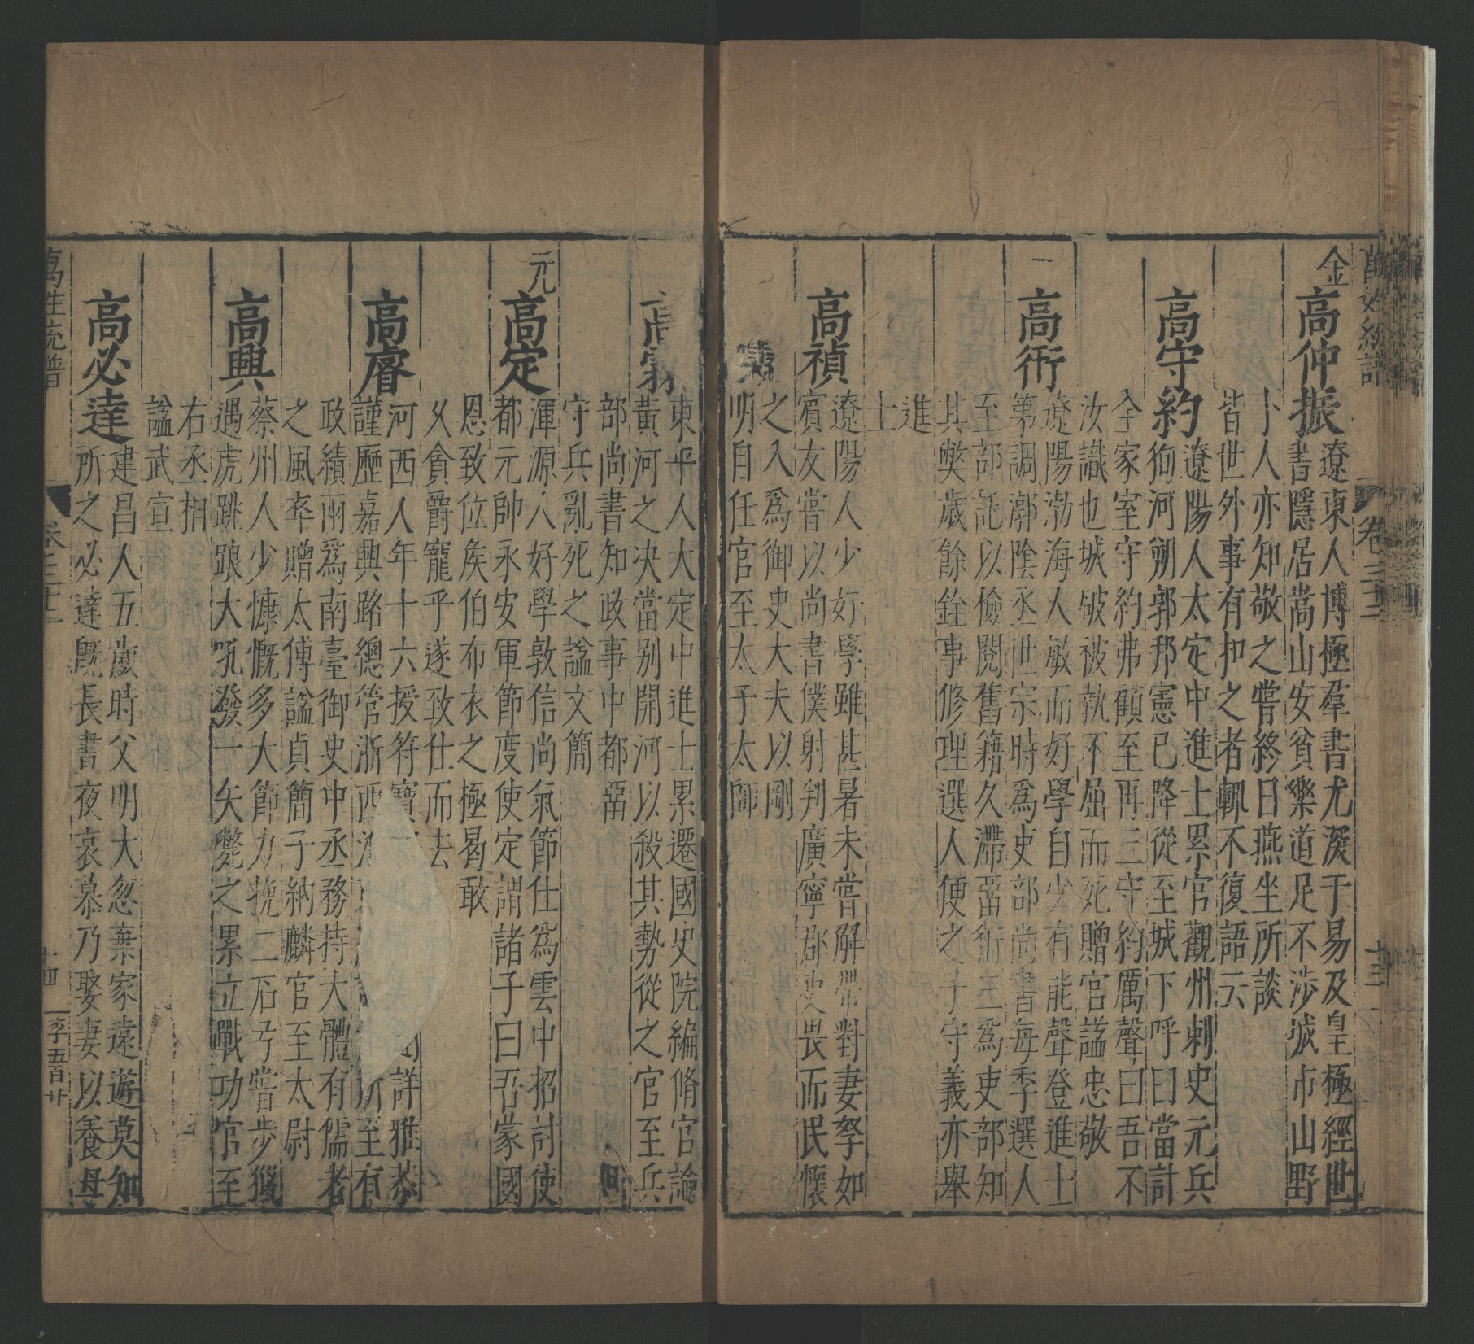 萬姓統譜
卷三十二
十三
金
高仲振
遼東人博極羣書尤深于易及皇極經世
書隱居嵩山安貧樂道足不涉城市山野
卜人亦知敬之嘗終日燕坐所談
皆世外事有扣之者輒不復語云
高守約
遼陽人大定中進士累官觀州刺史元兵
徇河朔郭邦憲已降從至城下呼曰當計
全家室守約弗顧至再三守約厲聲曰吾不
汝識也城破被執不屈而死贈官諡忠敬
高衎
遼陽渤海人敏而好學自少有能聲登進士
第調漷陰丞世宗時爲吏部尚書每季選人
至部託以儉閱舊籍久滯畱衎三爲吏部知
其獘歲餘銓事修理選人便之子守義亦舉
進
士
高禎
遼陽人少好學雖甚暑未嘗解帶對妻孥如
賓友嘗以尚書僕射判廣寧郡吏畏而民懷
之入爲御史大夫以剛
明自任官至太子太師
高
東平人大定中進士累遷國史院編脩官論
黃河之决當别開河以殺其勢從之官至兵
部尚書知政事中都畱
守兵亂死之諡文簡
元
高定
渾源人好學敦信尚氣節仕爲雲中招討使
都元帥永安軍節度使定謂諸子曰吾蒙國
恩致位矦伯布衣之極曷敢
乆貪爵寵乎遂致仕而去
高睿
河西人年十六授符寶
詳雅恭
謹歷嘉興路總管浙西
所至有
政績兩爲南臺御史中丞務持大體有儒者
之風卒贈太傅諡貞簡子納麟官至太尉
高興
蔡州人少慷慨多大節力挽二石弓嘗步獵
遇虎跳踉大吼發一矢斃之累立戰功官至
右丞相
諡武宣
高必達
建昌人五歲時父明大忽棄家遠遊莫知
所之必達旣長晝夜哀慕乃娶妻以養母
萬姓統譜
卷三十二
十四
李五百廿